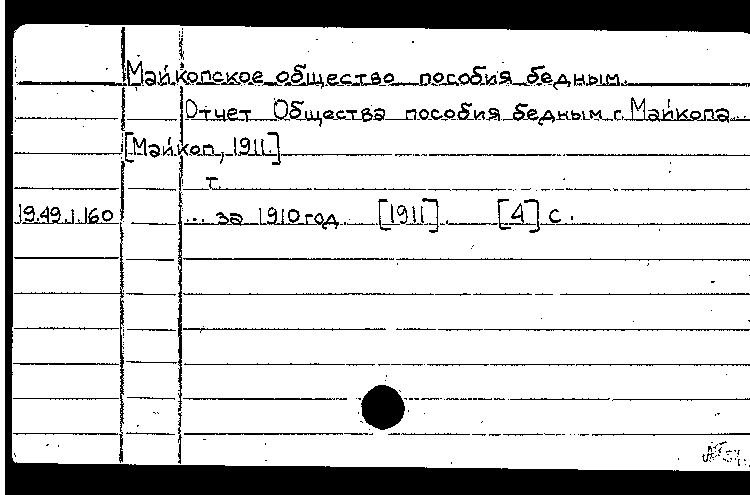 Майкопское общество пособия бедным.
Отчет Общества пособия бедным г. Майкопа
[Майкоп, 1911.]
т.
19.49.1.160 ... за 1910 год. [1911]. [4] с.